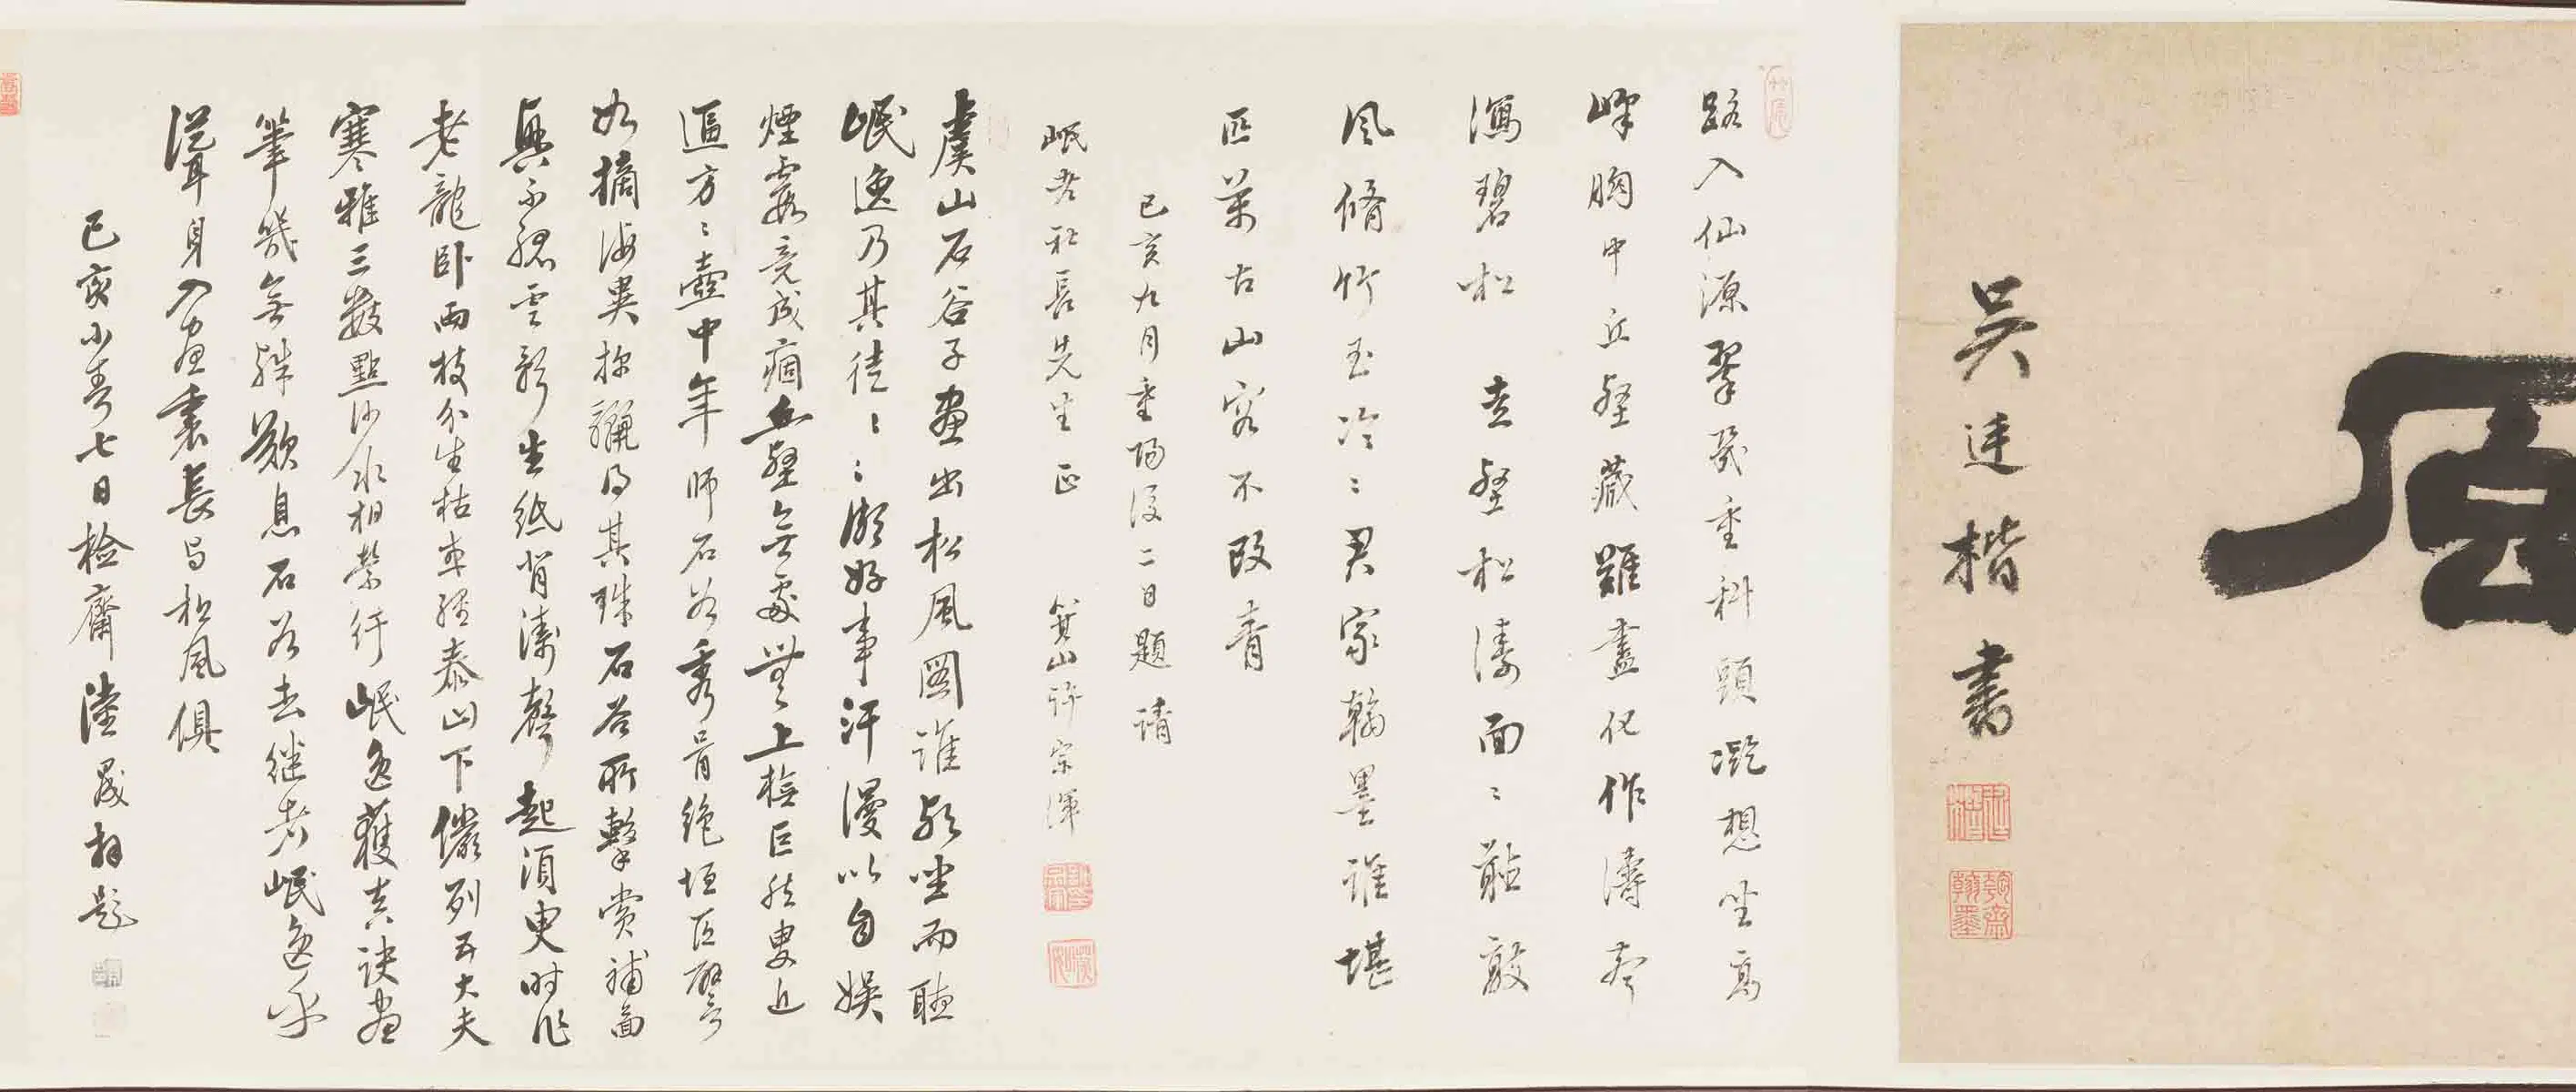 風
吳廷楷書
路入仙源翠幾重科頭凝想坐高
峰胸中丘壑藏難盡化作濤聲
瀉碧松 萬壑松濤面面敲
風脩竹玉冷冷君家翰墨誰堪
匹萬古山容不改青
己亥九月重陽後二日題請
岷老社長先生正 箕山許宗渾
虞山石谷子畫出松風圖誰能坐而聽
岷逸乃其徒徒徒頗好事汗漫以自娛
煙霞竟成痼丘壑無處無上接巨然叟近
逼方方壺中年師石谷秀骨絕垣區譬
如摘海異探驪得其珠石谷所擊賞補圖
興不孤雲影生紙背濤聲起須臾時作
老龍臥兩枝分生枯車經泰山下儼列五大夫
寒雅三數點沙水相縈紆岷逸獲真訣畫
筆幾無殊歎息石谷去繼者岷逸乎
從耳身入畫裏長與松風俱
己亥小春七日檢齋陸晟拜題